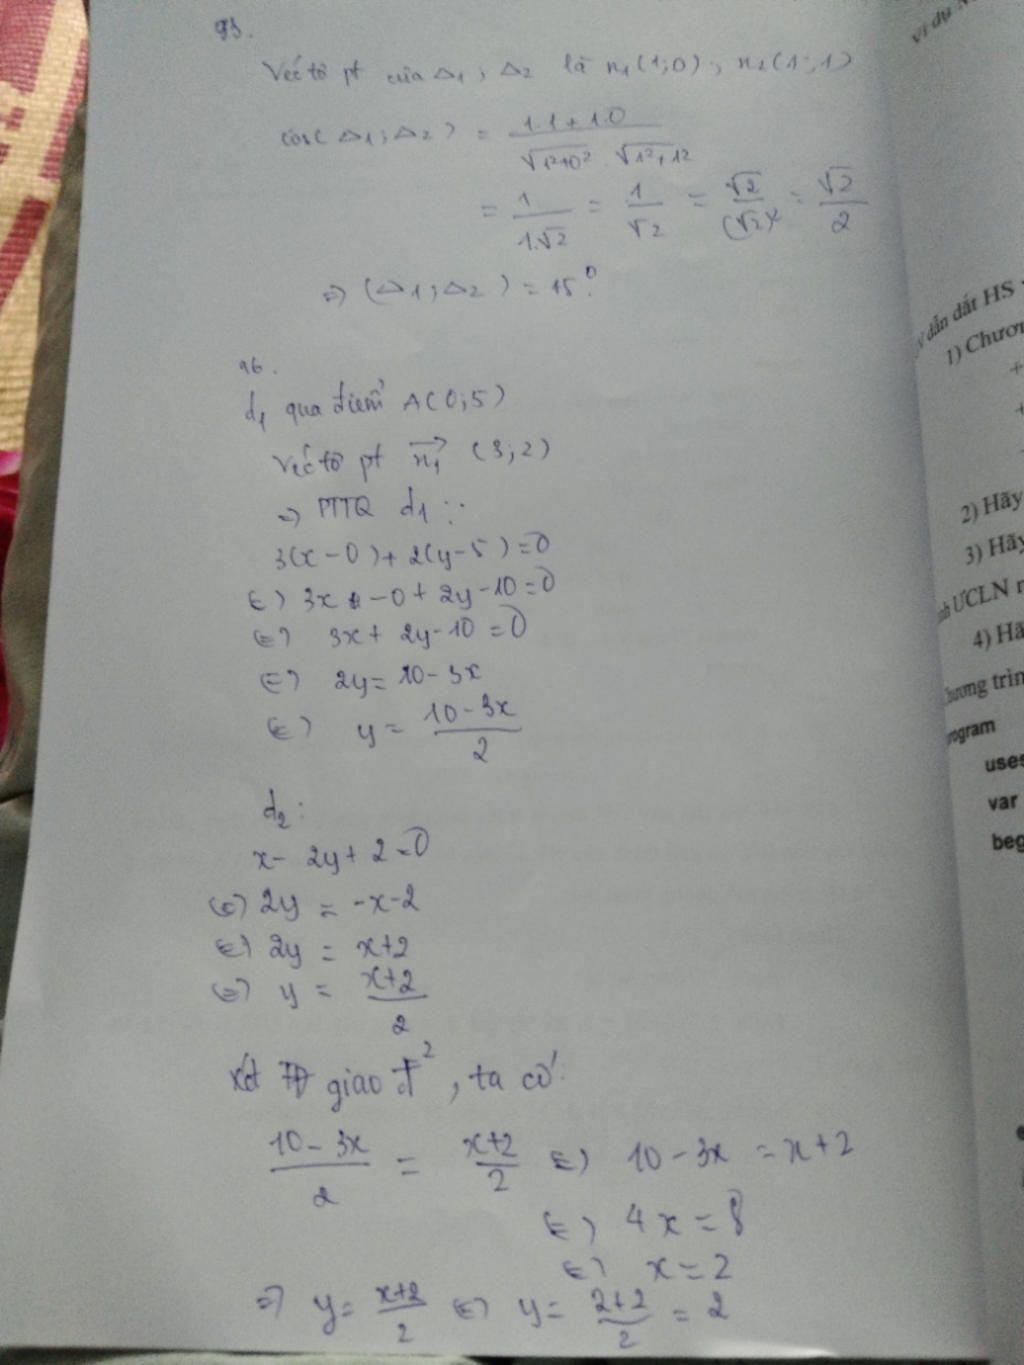 93.
Véctơ pt của Δ1 ; Δ2 là n1 (1;0) ; n2 (1;1)
cos( Δ1 ; Δ2 ) = (1.1 + 1.0) / (√(1²+0²) . √(1²+1²))
= 1/(1.√2) = 1/√2 = √2/(√2)² = √2/2
=> (Δ1 ; Δ2 ) = 45°.
96.
d1 qua điểm A(0;5)
véctơ pt n1 (3;2)
=> PTTQ d1 :
3(x-0) + 2(y-5) = 0
<=> 3x - 0 + 2y - 10 = 0
<=> 3x + 2y - 10 = 0
<=> 2y = 10 - 3x
<=> y = (10 - 3x)/2
d2 :
x - 2y + 2 = 0
<=> 2y = -x-2
<=> 2y = x+2
<=> y = (x+2)/2
giao đ², ta có:
(10 - 3x)/2 = (x+2)/2 <=> 10 - 3x = x+2
<=> 4x = 8
<=> x = 2
=> y = (x+2)/2 <=> y = (2+2)/2 = 2
ví dụ
dẫn dắt HS
1) Chươ
+
+
2) Hãy
3) Hãy
ƯCLN
4) Hã
hương trìn
rogram
uses
var
beg